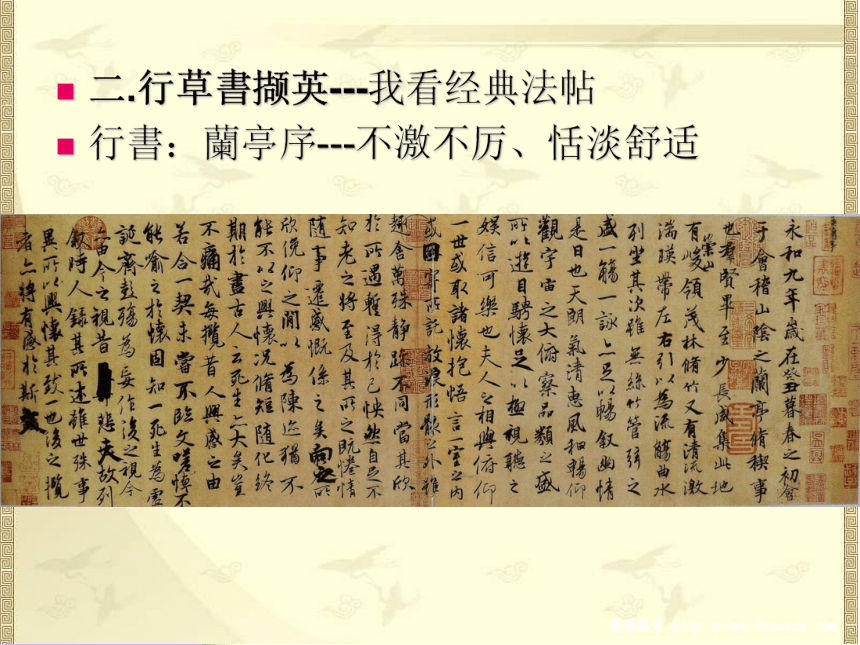 二.行草書撷英---我看经典法帖
行書：蘭亭序---不激不厉、恬淡舒适
永和九年歲在癸丑暮春之初會
于會稽山陰之蘭亭脩稧事
也羣賢畢至少長咸集此地
有崇山峻領茂林脩竹又有清流激
湍暎帶左右引以為流觴曲水
列坐其次雖無絲竹管弦之
盛一觴一詠亦足以暢敘幽情
是日也天朗氣清惠風和暢仰
觀宇宙之大俯察品類之盛
所以遊目騁懷足以極視聽之
娛信可樂也夫人之相與俯仰
一世或取諸懷抱悟言一室之內
或因寄所託放浪形骸之外雖
趣舍萬殊靜躁不同當其欣
於所遇暫得於己怏然自足不
知老之將至及其所之既惓情
隨事遷感慨係之矣向之所
欣俛仰之間以為陳迹猶不
能不以之興懷況脩短隨化終
期於盡古人云死生亦大矣豈
不痛哉每攬昔人興感之由
若合一契未嘗不臨文嗟悼不
能喻之於懷固知一死生為虛
誕齊彭殤為妄作後之視今
亦由今之視昔悲夫故列
敘時人錄其所述雖世殊事
異所以興懷其致一也後之攬
者亦將有感於斯文